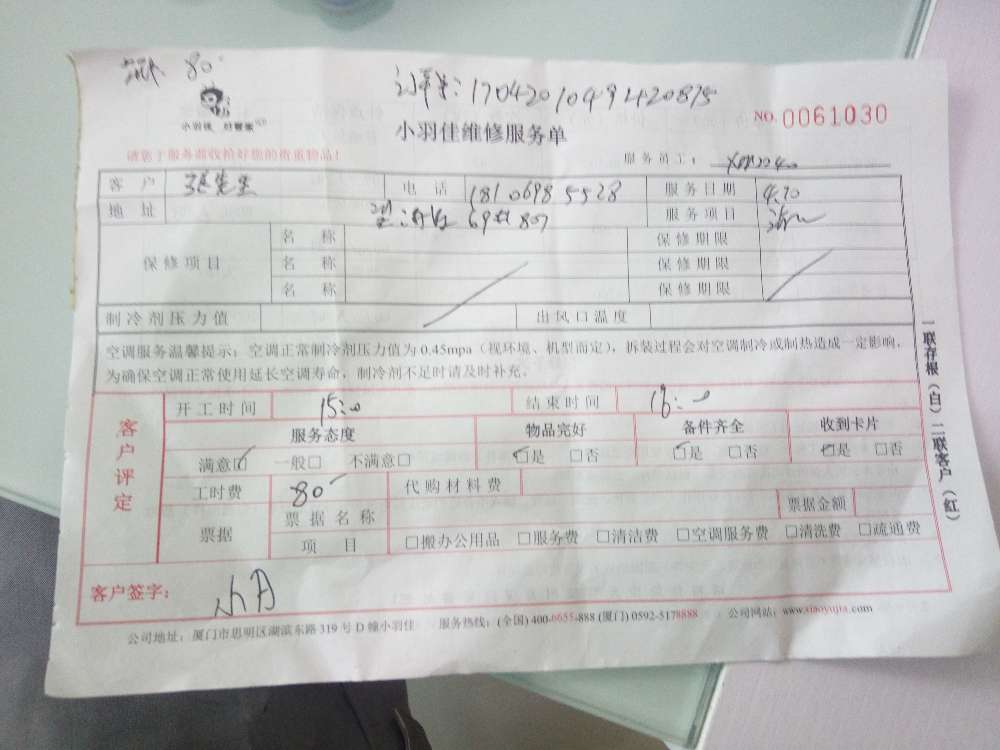 80
17042010491420875
小羽佳
NO. 0061030
小羽佳维修服务单
请您于服务前收拾好您的贵重物品!
服务员工:
客户 张先生 电话 18106985528 服务日期 4.20
地址 69# 807 服务项目
保修项目
名称 保修期限
名称 保修期限
名称 保修期限
制冷剂压力值 出风口温度
空调服务温馨提示:空调正常制冷剂压力值为0.45mpa(视环境、机型而定),拆装过程会对空调制冷或制热造成一定影响,
为确保空调正常使用延长空调寿命,制冷剂不足时请及时补充。
客户评定
开工时间 15:00 结束时间
服务态度 物品完好 备件齐全 收到卡片
满意☑ 一般□ 不满意□ ☑是 □否 ☑是 □否 ☑是 □否
工时费 80 代购材料费
票据 票据名称 票据金额
项目 □搬办公用品 □服务费 □清洁费 □空调服务费 □清洗费 □疏通费
客户签字:
公司地址:厦门市思明区湖滨东路319号D幢小羽佳 服务热线:(全国)400-6655-888 (厦门)0592-5178888 公司网站:www.xiaoyujia.com
一联存根(白)二联客户(红)